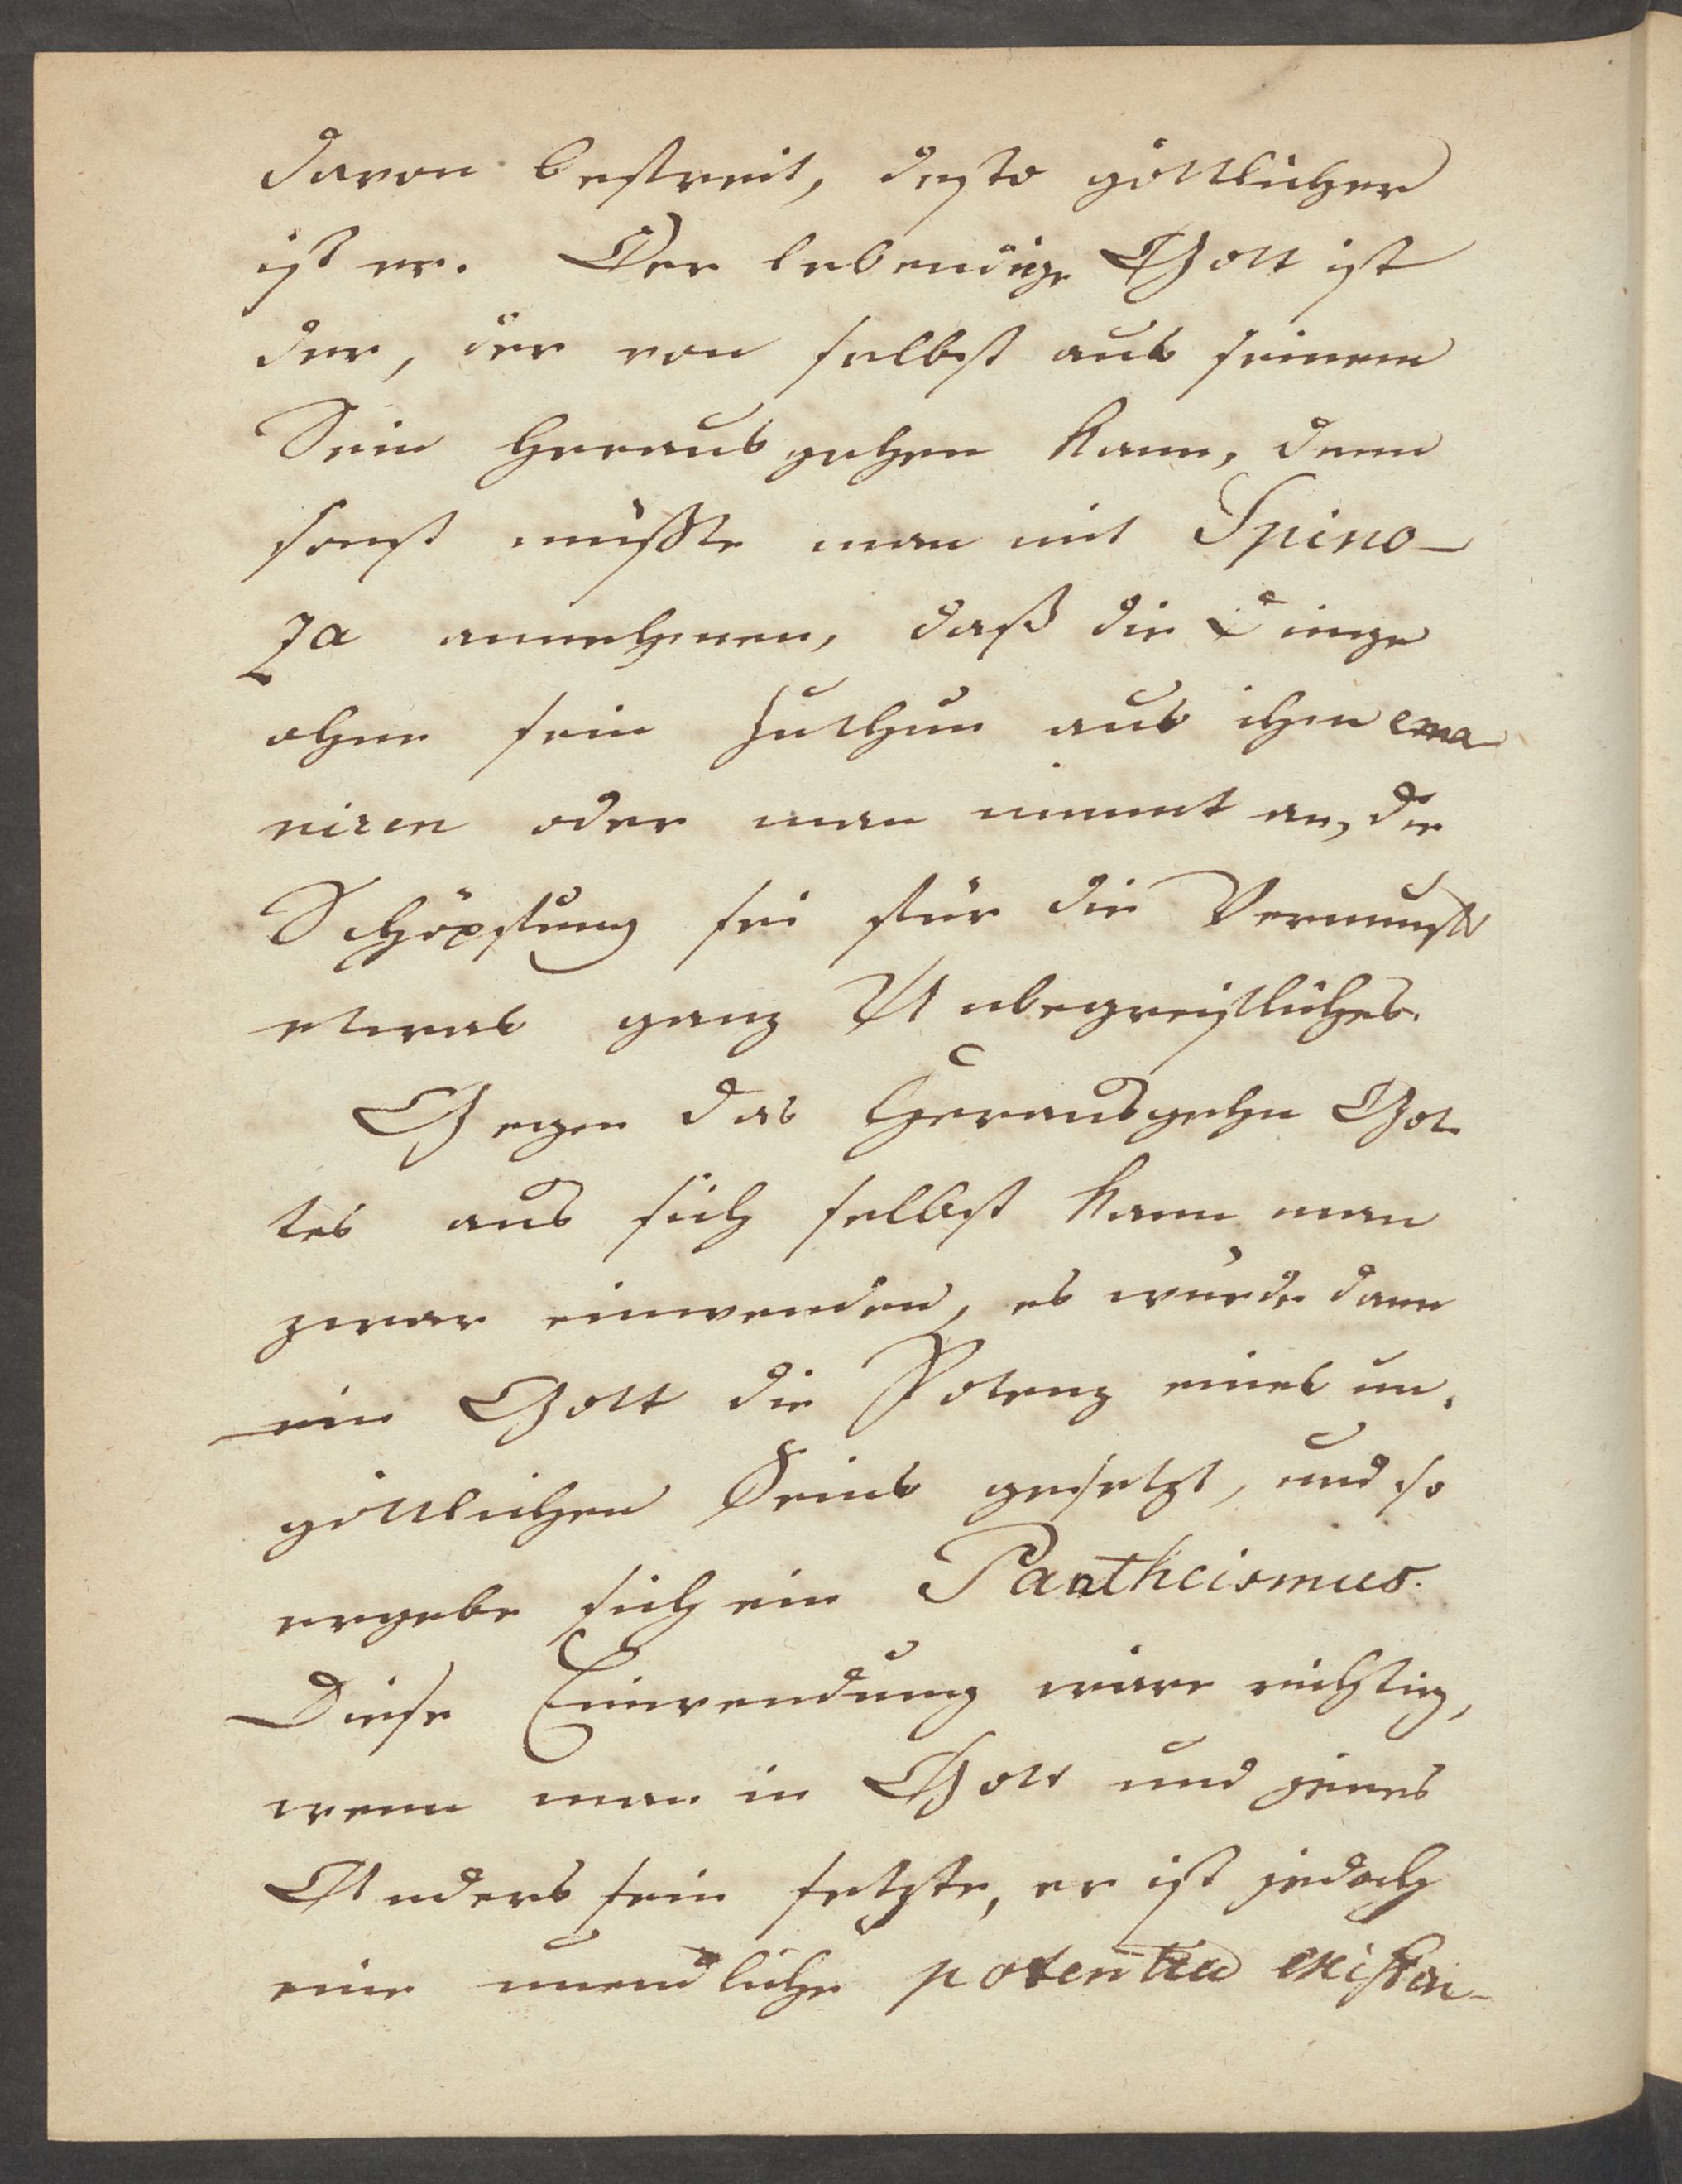 davon befreit, desto göttlicher
ist er. Der lebendige Gott ist
der, der von selbst aus seinem
Sein herausgehen kann, denn
sonst müßte man mit Spino-
za annehmen, daß die Dinge
ohne sein Zuthun aus ihm ema
niren oder man nimmt an, die
Schöpfung sei für die Vernunft
etwas ganz Unbegreifliches.
Gegen das Herausgehn Got-
tes aus sich selbst kann man
zwar einwenden, es würde dann
in Gott die Potenz eines un-
göttlichen Seins gesetzt, und so
ergebe sich ein Pantheismus.
Diese Einwendung wäre richtig,
wenn man in Gott und jenes
Anderssein setzte, er ist jedoch
eine unendliche potentia existen-